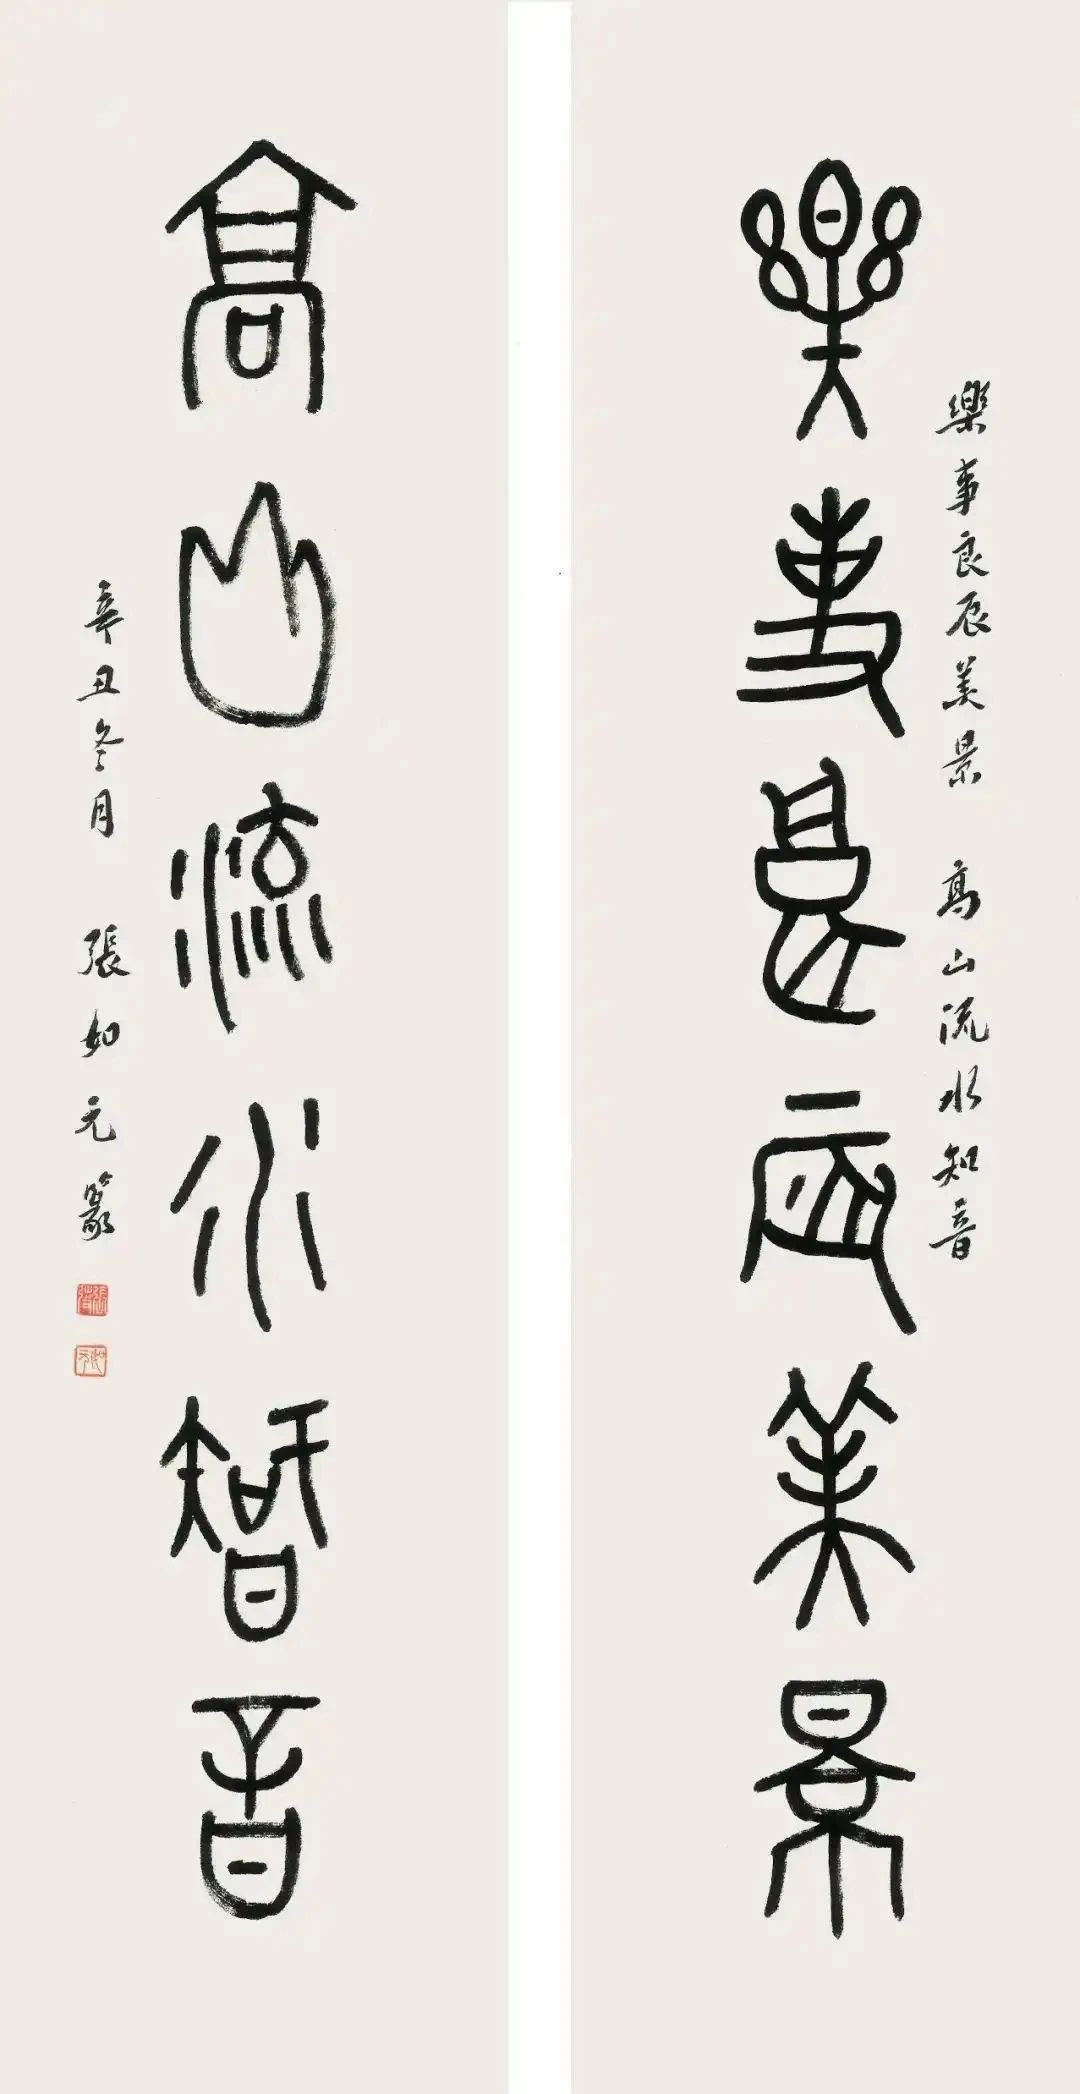 樂事良辰美景
樂事良辰美景 高山流水知音
高山流水智音
辛丑冬月 張如元篆